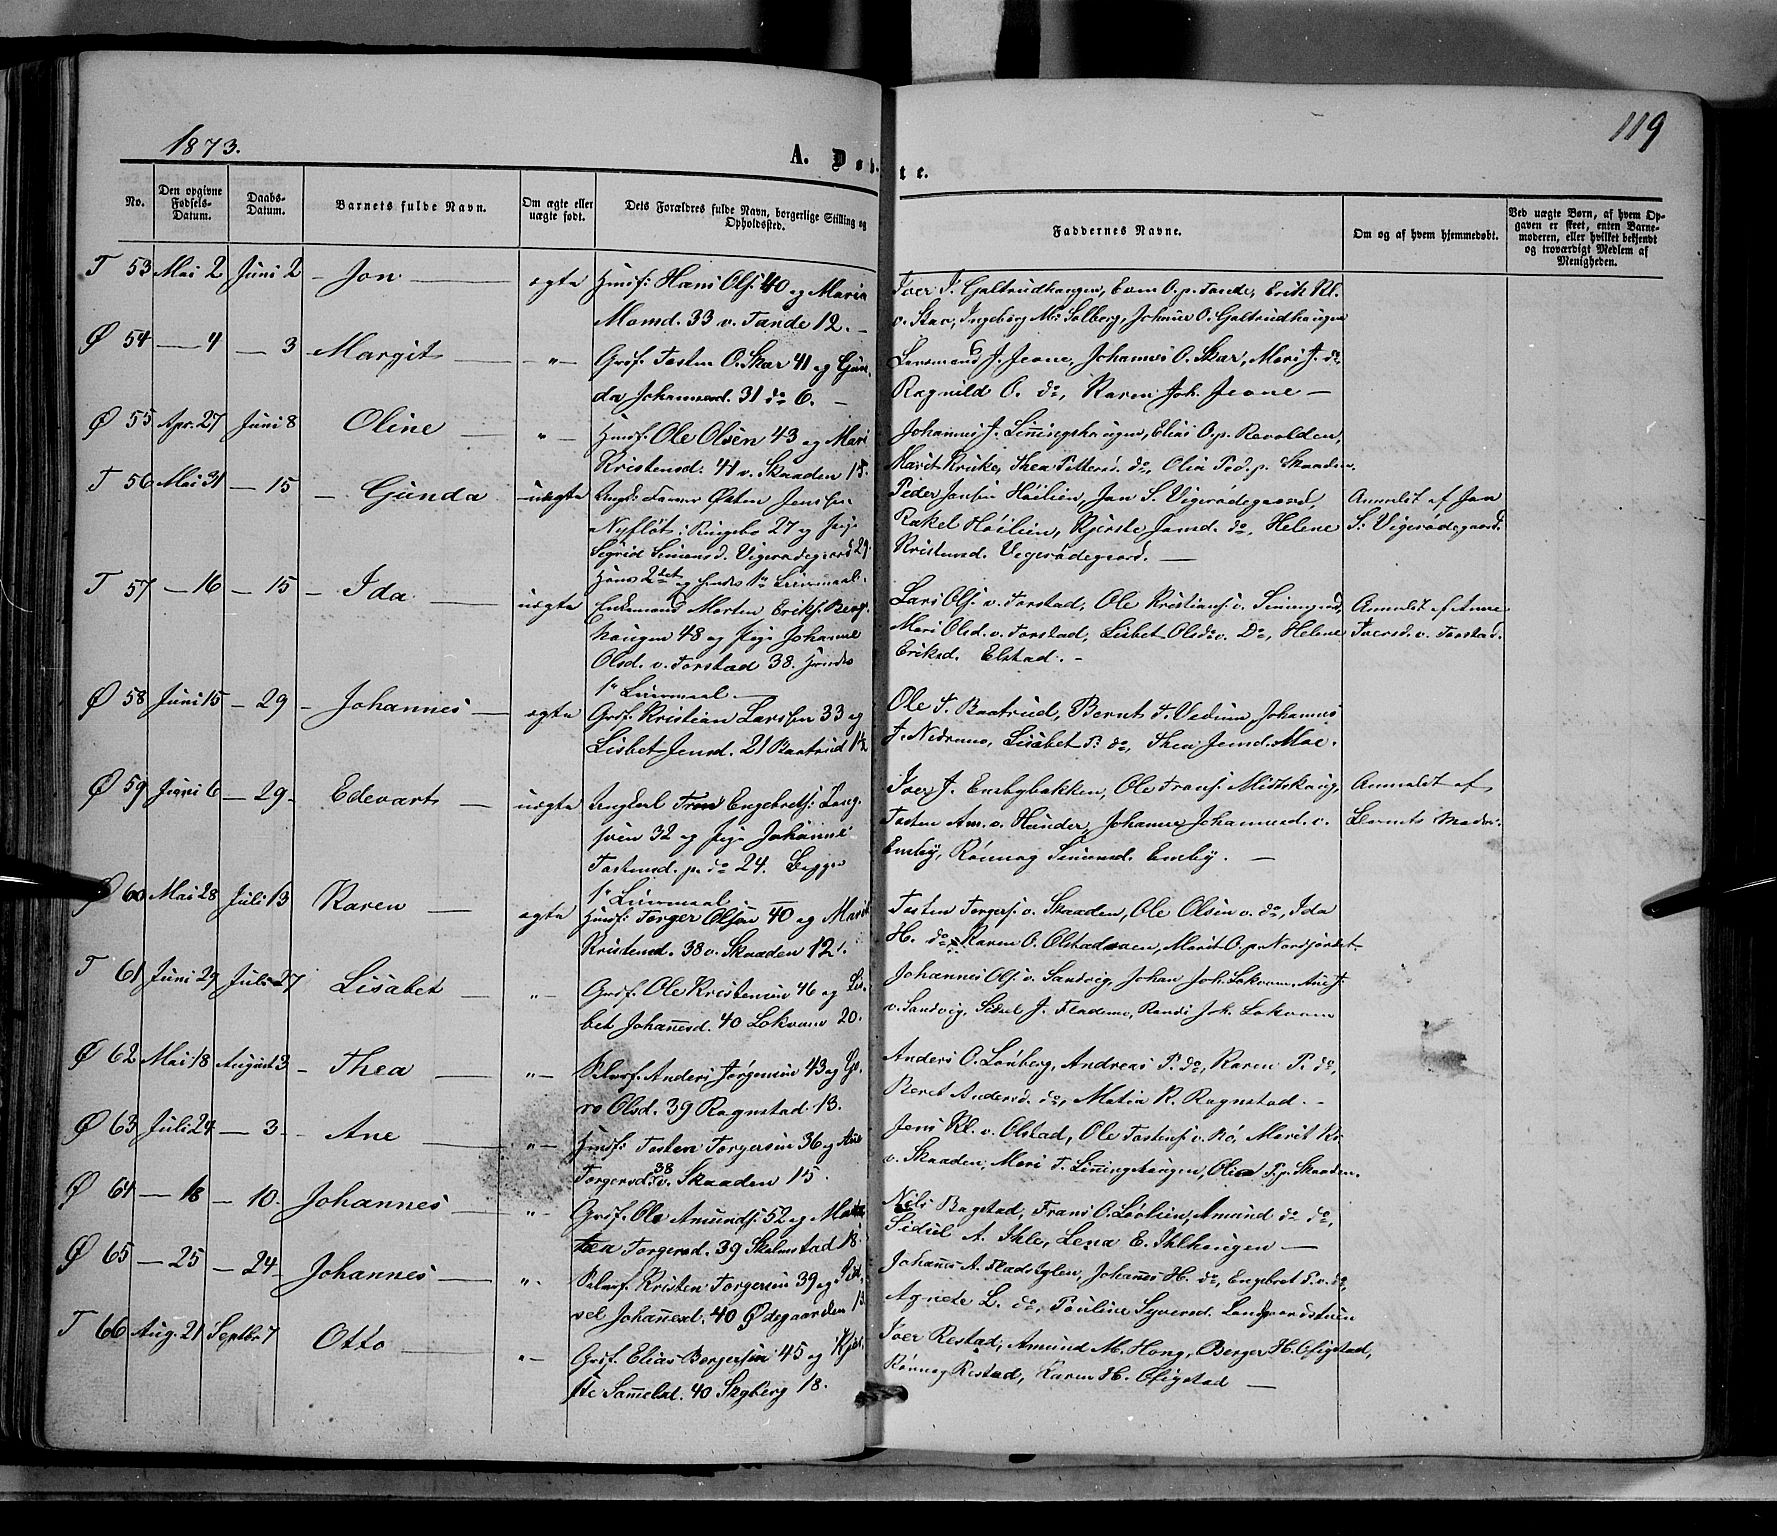 1873.
119
A. Døb-
te.
No.
Den opgivne Fødsels-Datum.
Daabs-Datum.
Barnets fulde Navn.
Om ægte eller uægte født.
Dets Forældres fulde Navn, borgerlige Stilling og Opholdssted.
Faddernes Navne.
Om og af hvem hjemmedøbt.
Ved uægte Børn, af hvem Opgaven er skeet, enten Barnemoderen, eller hvilket bekjendt og troværdigt Medlem af Menigheden.
T 53 Mai 2 Juni 2 – Jon ægte Husf: Hans Ols. 40 og Maria
Momd. 33 v. Tande 12. –
Iver I. Galtrudhaugen, Even O. p. Tande, Erik Kl.
v. Stav, Ingeborg M. Solberg, Johanne O. Galtrudhaugen
Ø 54 – 4 – 3 Margit – " – Grdf. Tosten O. Skar 41 og Gun-
da Johannesd. 31 do 6. –
Lensmand J. Jevne, Johannes O. Skar, Mari J. do
Ragnild O. do, Karen Joh. Jevne –
Ø 55 Apr. 27 Juni 8 Oline – " – Husf. Ole Olsen 43 og Mari
Kristensd. 41 v. Skaaden 15.
Johannes J. Linningshaugen, Elias O. p. Revolden,
Marit Kruke, Thea Pettersd. do, Olia Ped. p. Skaaden.
T 56 Mai 31 – 15 – Gunda uægte Ungk: Farver Østen Jensen
Nyfløt i Ringebo 27 og Pige
Sigrid Simensd. Vigerødegaard 29.
Hans 2det og hendes 1e Leiermaal.
Peder Jensen Høilien, Jan S. Vigerødegaard,
Rakel Høilien, Kjerste Jansd. do, Helene
Kristensd. Vigerødegaard. –
Anmeldt af Jan
S. Vigerødegaard.
T 57 – 16 – 15 – Ida – uægte Enkemand Morten Eriks. Berg-
haugen 48 og Pige Johanne
Olsd. v. Forstad 38. Hendes
1e Leiermaal –
Lars Ols. v. Forstad, Ole Kristians. v.
Mari Olsd. v. Forstad, Lisbet Olsd. v. Do, Helene
Eriksd. Elstad. –
Anmeldt af Anne
Iversd. v. Forstad.
Ø 58 Juni 15 – 29 – Johannes – ægte Grdf. Kristian Larsen 33 og
Lisbet Jensd. 21 Baatrud 1½
Ole T. Baatrud, Bernt T. Vedum, Johannes
J. Nedrumo, Lisabet P. do, Thea Jensd. Moe.
Ø 59 Juni 6 – 29 – Edevart – uægte Ungkarl Tron Engebrets. Lang-
sveen 32 og Pige Johanne
Tostensd. p. do 24. Begges
1e Leiermaal.
Iver J. Enebybakken, Ole Frans. Midtskaug
Tosten Am. v. Hunder, Johanne Johannesd. v.
Eneby, Rønnog Simensd. Eneby. –
Anmeldt af
Barnets Moder.
Ø 60 Mai 28 Juli 13 Karen – ægte Husf: Torger Olsen 40 og Marit
Kristensd. 38 v. Skaaden 12.
Tosten Torgers. v. Skaaden, Ole Olsen v. do, Ida
H. do, Karen O. Olstadsveen, Marit O. p. Nordjordet
T 61 Juni 29 Juli 27 Lisabet – " – Grdf. Ole Kristensen 46 og Lis-
bet Johannesd. 40 Lokvam 20.
Johannes Ols. v. Sandvig, Johan Joh. Lokvam, Ane J.
v. Sandvig, Sidsel J. Flademo, Randi Joh. Lokvam
Ø 62 Mai 18 August 3 – Thea – " – Selvf. Anders Jørgensen 43 og Gu-
ro Olsd. 39 Ragnstad 13.
Anders O. Lønberg, Andreas P. do, Karen P. do,
Beret Andersd. do, Matia R. Ragnstad. –
Ø 63 Juli 24 – 3 – Ane – " – Husf. Tosten Torgersen 36 og Ane
Torgersd. 38 v. Skaaden 15.
Jens Kl. v. Olstad, Ole Tostens. v. Rø, Marit Kr.
v. Skaaden, Mari T. Linningshaugen, Olia P. p. Skaaden.
Ø 64 – 18 – 10. Johannes – " – Grdf. Ole Amunds. 52 og Mat-
tea Torgersd. 39 Skolmstad 18.
Nils Bagstad, Frans O. Løvlien, Amund do do,
Sidsel A. Ihle, Lena E. Ihlhaugen –
Ø 65 – 25 – 24 – Johannes – " – Selvf. Kristen Torgersen 39 og Sid-
sel Johannesd. 40 Ødegaarden 13
Johannes A. Fladstylen, Johannes H. do, Engebret P. v. do,
Agnete L. do, Pauline Syversd. Landgaardstuen
T 66 Aug. 21 Septbr 7 Otto – " – Grdf. Elias Bergersen 45 og Kjer-
ste Samuelsd. 40 Segberg 18.
Iver Restad, Amund M. Hong, Berger H. Ofigstad,
Rønnog Restad, Karen H. Ofigstad –